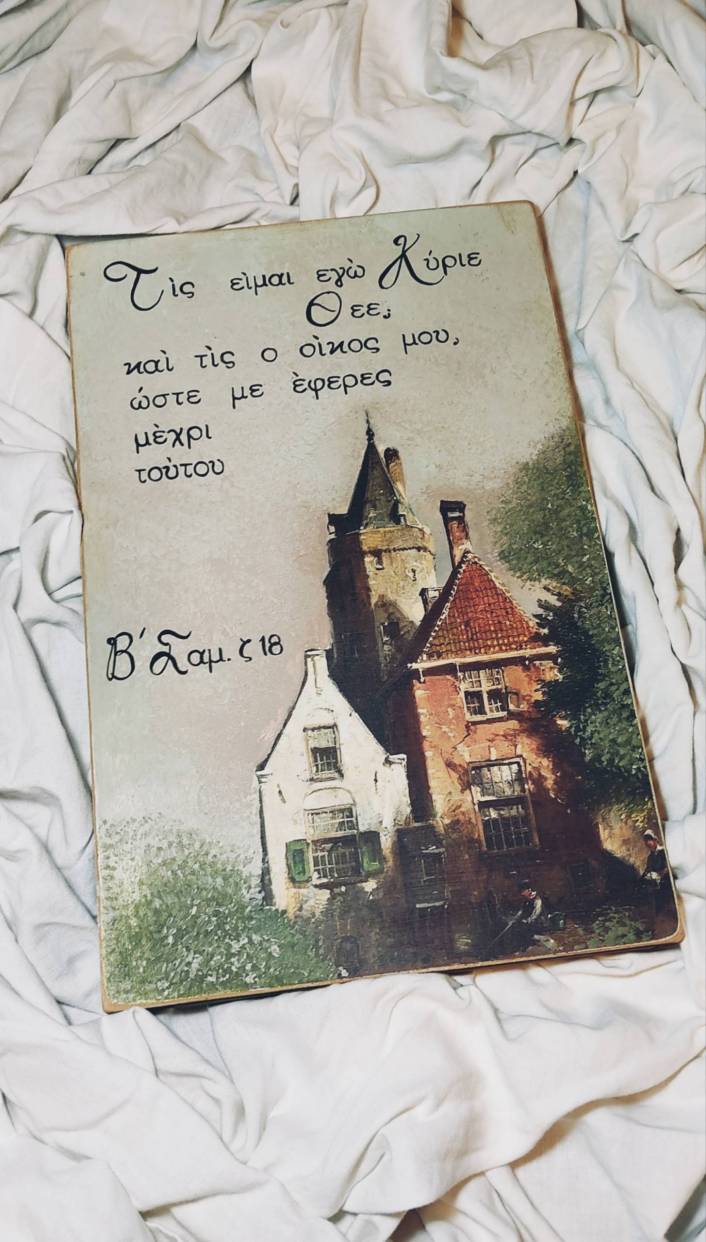 Τὶς εὶμαι εγὼ Κύριε
Θεε;
καὶ τὶς ο οὶκος μου,
ώστε με ὲφερες
μὲχρι
τοὺτου
Β΄ Σαμ. ζ 18